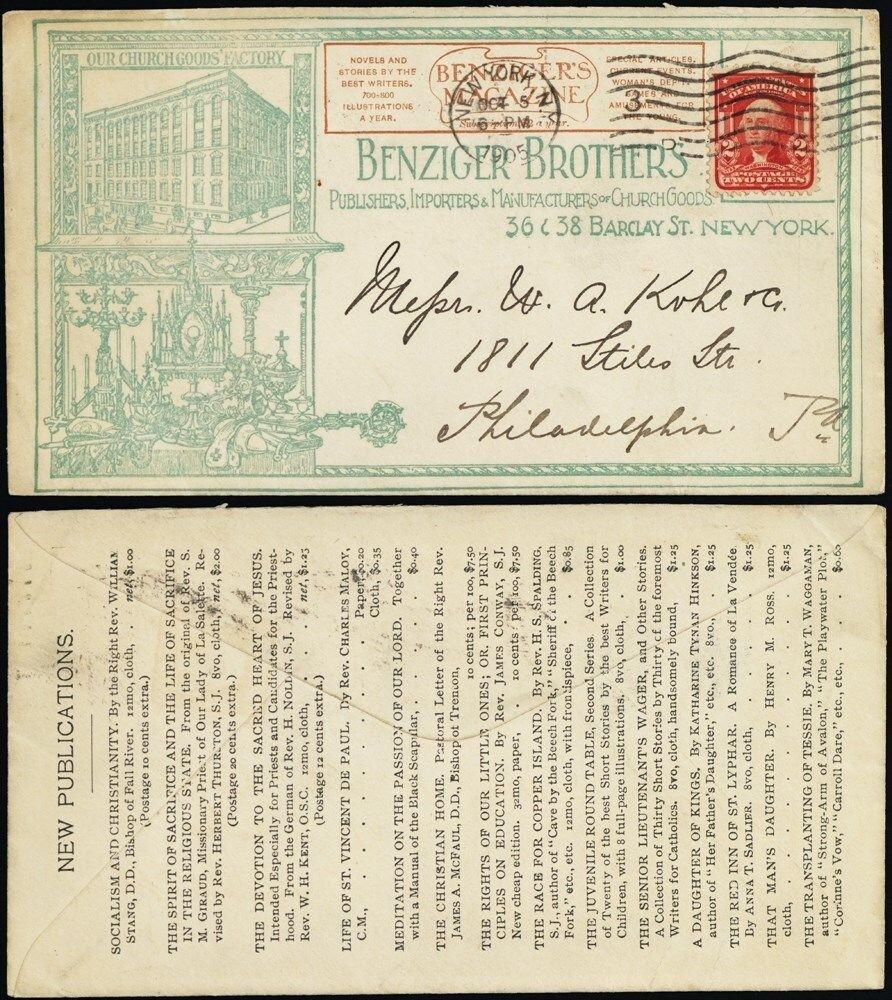 OUR CHURCH GOODS FACTORY
NOVELS AND
STORIES BY THE
BEST WRITERS.
700-800
ILLUSTRATIONS
A YEAR.
BENZIGER'S
MAGAZINE
Subscription $2 a year.
SPECIAL ARTICLES.
CURRENT EVENTS.
WOMAN'S DEPT.
GAMES AND
AMUSEMENTS FOR
THE YOUNG.
NEW YORK, N.Y.
OCT 5
6 PM
1905
2
D
UNITED STATES
OF AMERICA
2 2
POSTAGE
TWO CENTS
BENZIGER BROTHERS
PUBLISHERS, IMPORTERS & MANUFACTURERS OF CHURCH GOODS
36 & 38 BARCLAY ST. NEW YORK.
Messrs. W. A. Kohl & Co.
1811 Stiles Str.
Philadelphia. Pa
NEW PUBLICATIONS.
SOCIALISM AND CHRISTIANITY. By the Right Rev. WILLIAM
STANG, D.D., Bishop of Fall River. 12mo, cloth, . net, $1.00
(Postage 10 cents extra.)
THE SPIRIT OF SACRIFICE AND THE LIFE OF SACRIFICE
IN THE RELIGIOUS STATE. From the original of Rev. S.
M. GIRAUD, Missionary Priest of Our Lady of La Salette. Re-
vised by Rev. HERBERT THURSTON, S.J. 8vo, cloth, net, $2.00
(Postage 20 cents extra.)
THE DEVOTION TO THE SACRED HEART OF JESUS.
Intended Especially for Priests and Candidates for the Priest-
hood. From the German of Rev. H. NOLDIN, S.J. Revised by
Rev. W. H. KENT, O.S.C. 12mo, cloth, . . . net, $1.25
(Postage 12 cents extra.)
LIFE OF ST. VINCENT DE PAUL. By Rev. CHARLES MALOY,
C.M., . . . . . . . Paper, $0.20
Cloth, $0.35
MEDITATION ON THE PASSION OF OUR LORD. Together
with a Manual of the Black Scapular, . . . . $0.40
THE CHRISTIAN HOME. Pastoral Letter of the Right Rev.
JAMES A. MCFAUL, D.D., Bishop of Trenton,
10 cents; per 100, $7.50
THE RIGHTS OF OUR LITTLE ONES; OR, FIRST PRIN-
CIPLES ON EDUCATION. By Rev. JAMES CONWAY, S.J.
New cheap edition. 32mo, paper, . 10 cents; per 100, $7.50
THE RACE FOR COPPER ISLAND. By Rev. H. S. SPALDING,
S.J., author of "Cave by the Beech Fork," "Sheriff of the Beech
Fork," etc., etc. 12mo, cloth, with frontispiece, . . $0.85
THE JUVENILE ROUND TABLE, Second Series. A Collection
of Twenty of the best Short Stories by the best Writers for
Children, with 8 full-page illustrations. 8vo, cloth, . $1.00
THE SENIOR LIEUTENANT'S WAGER, and Other Stories.
A Collection of Thirty Short Stories by Thirty of the foremost
Writers for Catholics. 8vo, cloth, handsomely bound, . $1.25
A DAUGHTER OF KINGS. By KATHARINE TYNAN HINKSON,
author of "Her Father's Daughter," etc., etc. 8vo., . $1.25
THE RED INN OF ST. LYPHAR. A Romance of La Vendée.
By ANNA T. SADLIER. 8vo, cloth, . . . . $1.25
THAT MAN'S DAUGHTER. By HENRY M. ROSS. 12mo,
cloth, . . . . . . . . . $1.25
THE TRANSPLANTING OF TESSIE. By MARY T. WAGGAMAN,
author of "Strong-Arm of Avalon," "The Playwater Plot,"
"Corinne's Vow," "Carroll Dare," etc., etc., . . . $0.60